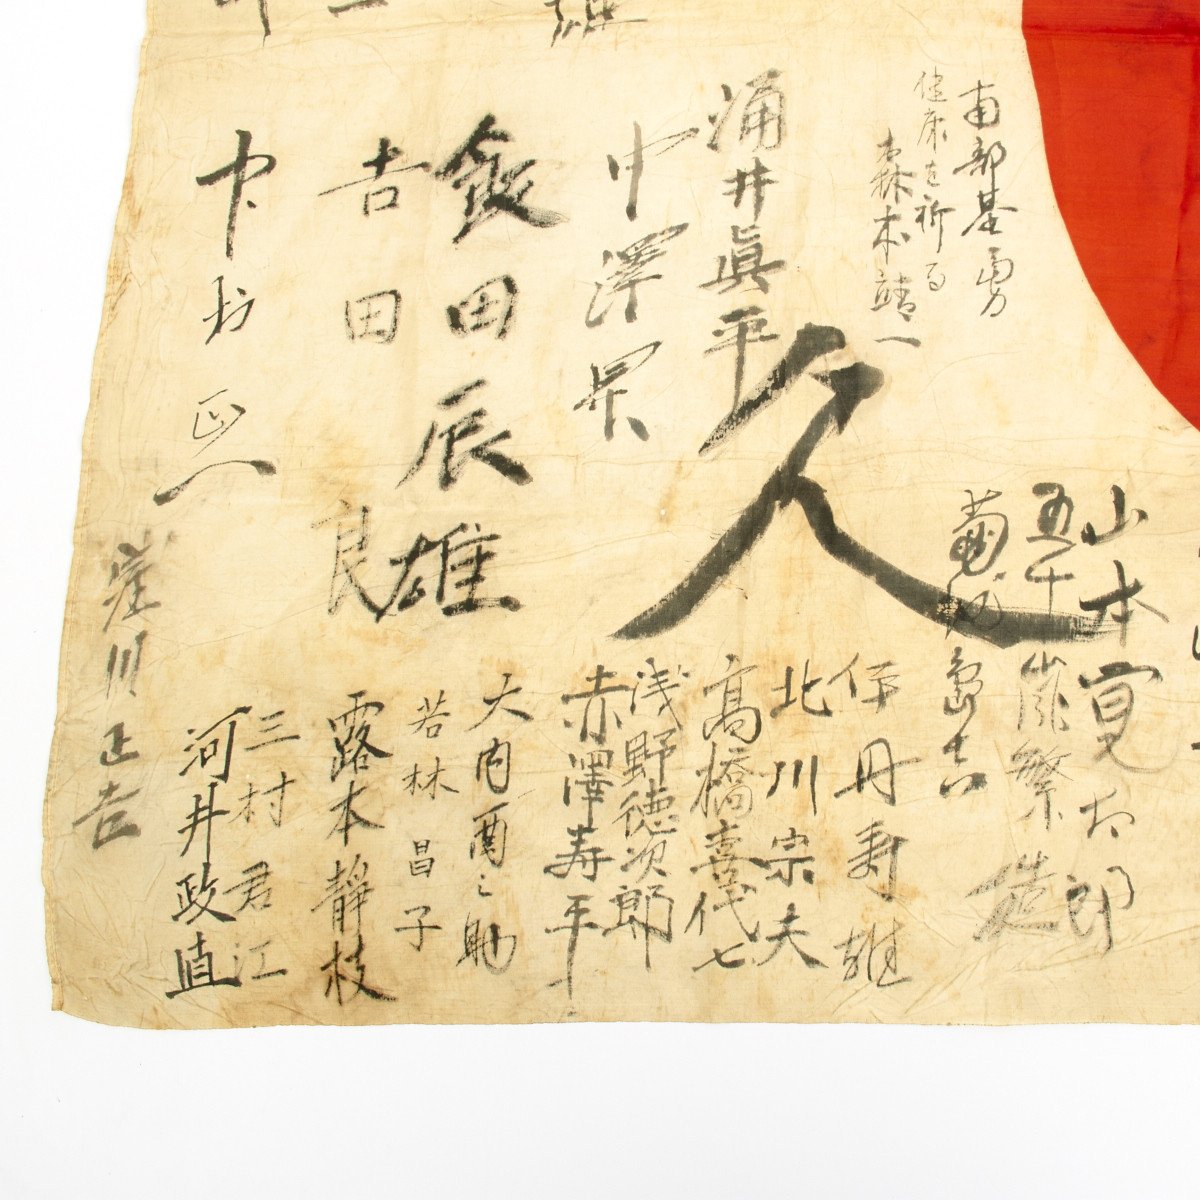 南部基勇
健康を祈る
森木靖一
涌井眞平
中澤昇
飯田辰雄
吉田良
久
山本寛太郎
五十嵐繁雄
菊池多吉
伊丹寿雄
北川宗夫
高橋喜代七
浅野徳次郎
赤澤寿平
大内酉之助
若林昌子
露本静枝
三村君江
河井政直
窪川正吉